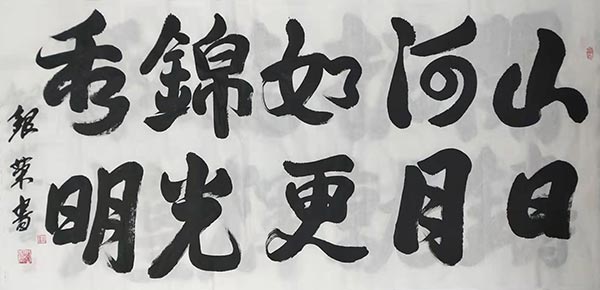 山河如錦秀
日月更光明
銀荣書